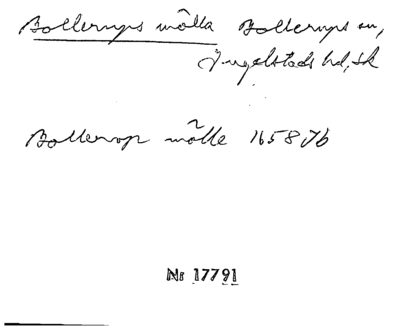 Bollerups mölla Bollerups sn,
Ingelstads hd, Sk
Bollerop mölle 1658 Jb
Nr 17791